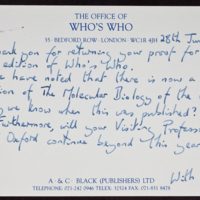 THE OFFICE OF
WHO'S WHO
35 · BEDFORD ROW · LONDON · WC1R 4JH
28th Jun
you for returning your proof for
edition of Who's Who.
have noted that there is now a
of The Molecular Biology of the
we know when this was published?
Furthermore, will your Visiting Profess
Oxford continue beyond this year
With
A · & · C · BLACK (PUBLISHERS) LTD
TELEPHONE: 071-242 0946 TELEX: 32524 FAX: 071-831 8478